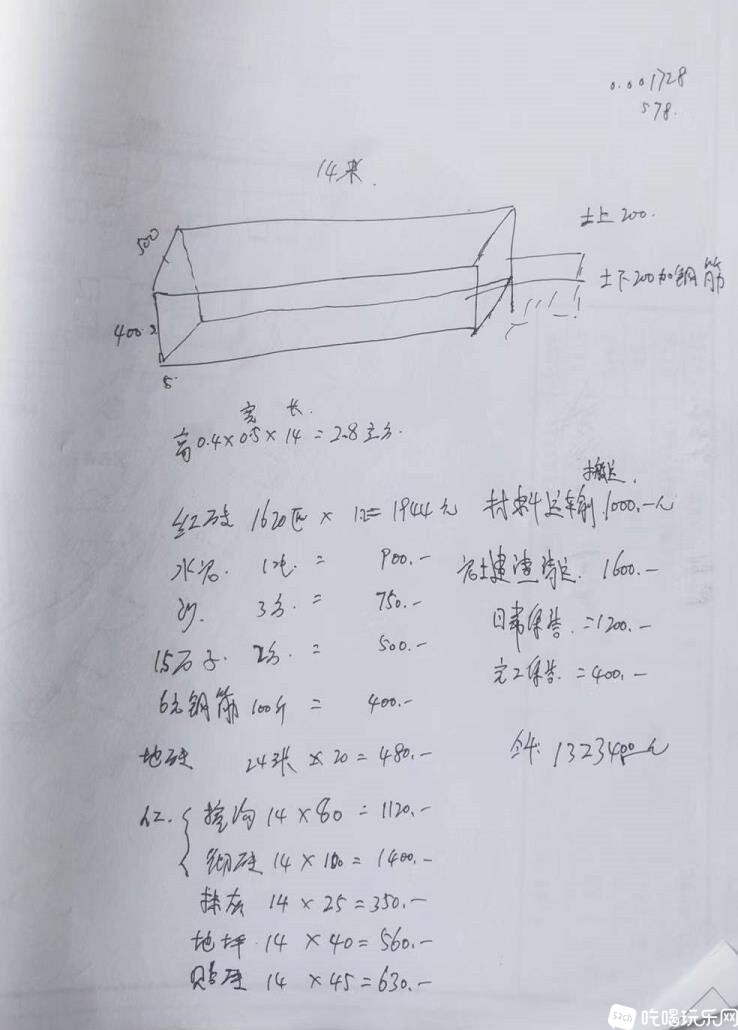 0.001728
578.
14米.
500
土上200.
土下200加钢筋
400.2
5.
宽 长.
高0.4×0.5×14=2.8立方.
搬运.
红砖 1620匹 × 1.2=1944元
材料运输 1000.-元
水泥. 1吨. = 900.-
渣土建渣清运. 1600.-
沙. 3方. = 750.-
日常保洁. =1200.-
15石子. 2方. = 500.-
完工保洁. =400.-
6元钢筋 100斤 = 400.-
地砖 24张 ×20=480.-
合计: 13234.00元
人工. 挖沟 14×80=1120.-
砌砖 14×100=1400.-
抹灰 14×25=350.-
地坪 14×40=560.-
贴砖 14×45=630.-
吃喝玩乐xx